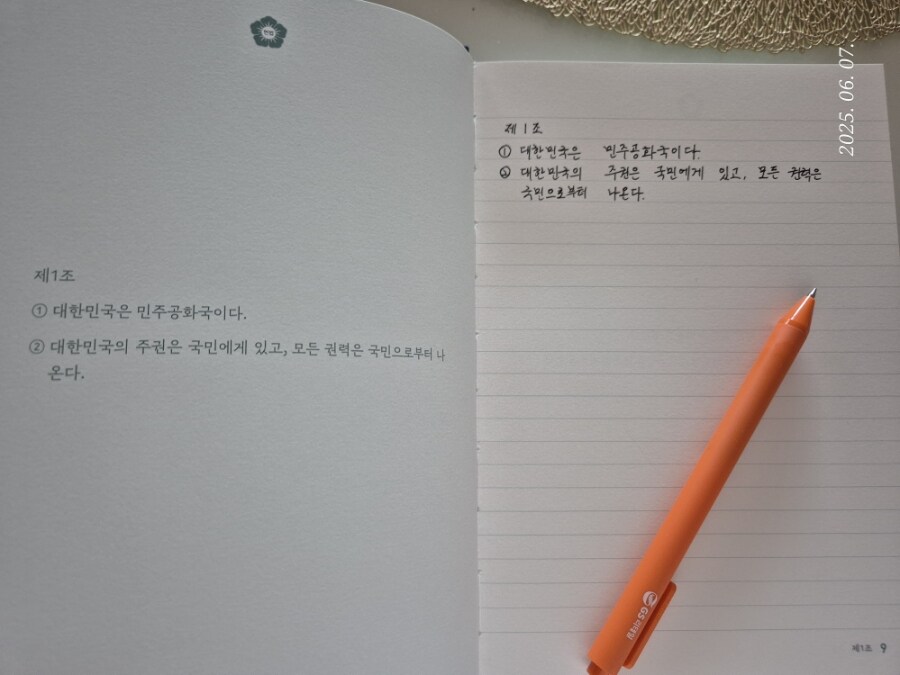 헌법
제1조
① 대한민국은 민주공화국이다.
② 대한민국의 주권은 국민에게 있고, 모든 권력은 국민으로부터 나
온다.
제1조
① 대한민국은 민주공화국이다.
② 대한민국의 주권은 국민에게 있고, 모든 권력은
국민으로부터 나온다.
2025. 06. 07.
GS 리테일
제1조 9